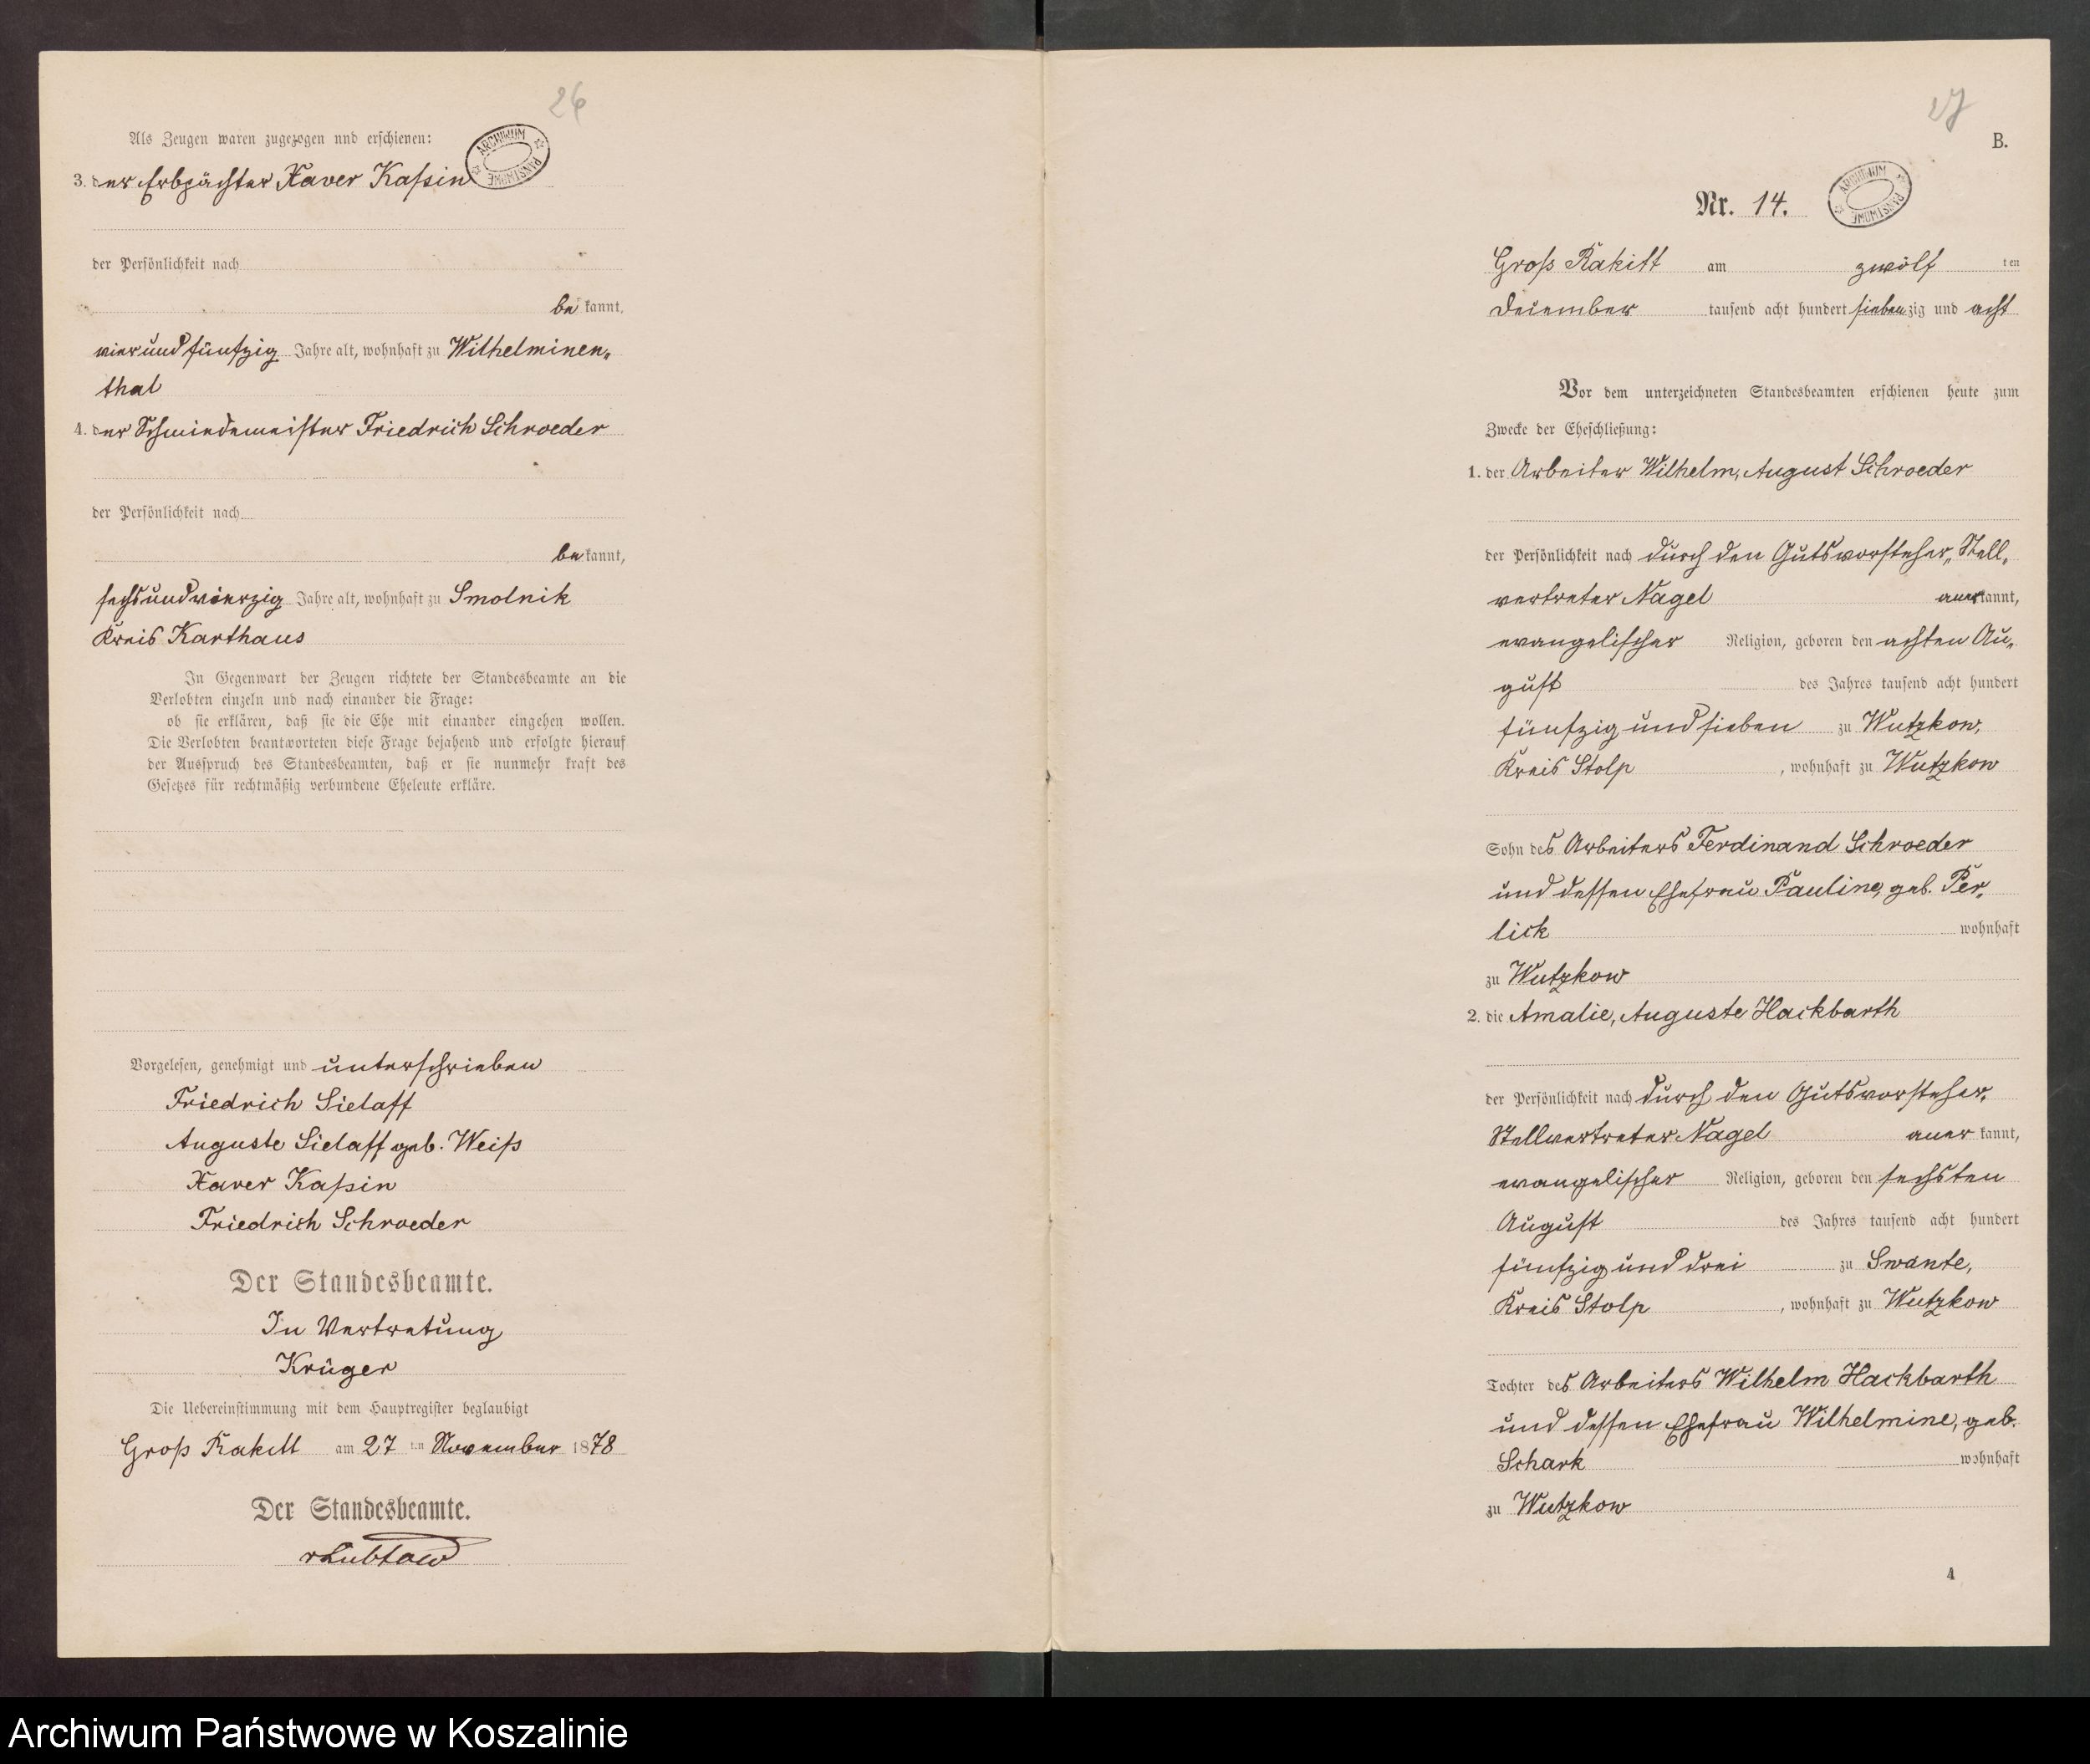 26
Als Zeugen waren zugezogen und erschienen:
ARCHIWUM PAŃSTWOWE
3. der Erbpächter Xaver Kaßin
der Persönlichkeit nach
be kannt,
vierundfünfzig Jahre alt, wohnhaft zu Wilhelminen„
thal
4. der Schmiedemeister Friedrich Schroeder
der Persönlichkeit nach
be kannt,
sechsundvierzig Jahre alt, wohnhaft zu Smolnik
Kreis Karthaus
In Gegenwart der Zeugen richtete der Standesbeamte an die
Verlobten einzeln und nach einander die Frage:
ob sie erklären, daß sie die Ehe mit einander eingehen wollen.
Die Verlobten beantworteten diese Frage bejahend und erfolgte hierauf
der Ausspruch des Standesbeamten, daß er sie nunmehr kraft des
Gesetzes für rechtmäßig verbundene Eheleute erkläre.
Vorgelesen, genehmigt und unterschrieben
Friedrich Sielaff
Auguste Sielaff geb. Weiß
Xaver Kaßin
Friedrich Schroeder
Der Standesbeamte.
In Vertretung
Krüger
Die Uebereinstimmung mit dem Hauptregister beglaubigt
Groß Rakitt am 27 ten November 1878
Der Standesbeamte.
vLübtow
27
B.
Nr. 14.
ARCHIWUM PAŃSTWOWE
Groß Rakitt am zwölf ten
December tausend acht hundert siebenzig und acht
Vor dem unterzeichneten Standesbeamten erschienen heute zum
Zwecke der Eheschließung:
1. der Arbeiter Wilhelm, August Schroeder
der Persönlichkeit nach durch den Gutsvorsteher„ Stell„
vertreter Nagel anerkannt,
evangelischer Religion, geboren den achten Au„
gust des Jahres tausend acht hundert
fünfzig und sieben zu Wutzkow,
Kreis Stolp, wohnhaft zu Wutzkow
Sohn des Arbeiters Ferdinand Schroeder
und dessen Ehefrau Pauline, geb. Per„
lick wohnhaft
zu Wutzkow
2. die Amalie, Auguste Hackbarth
der Persönlichkeit nach durch den Gutsvorsteher„
Stellvertreter Nagel aner kannt,
evangelischer Religion, geboren den sechsten
August des Jahres tausend acht hundert
fünfzig und drei zu Swante,
Kreis Stolp, wohnhaft zu Wutzkow
Tochter des Arbeiters Wilhelm Hackbarth
und dessen Ehefrau Wilhelmine, geb.
Schark wohnhaft
zu Wutzkow
4
Archiwum Państwowe w Koszalinie